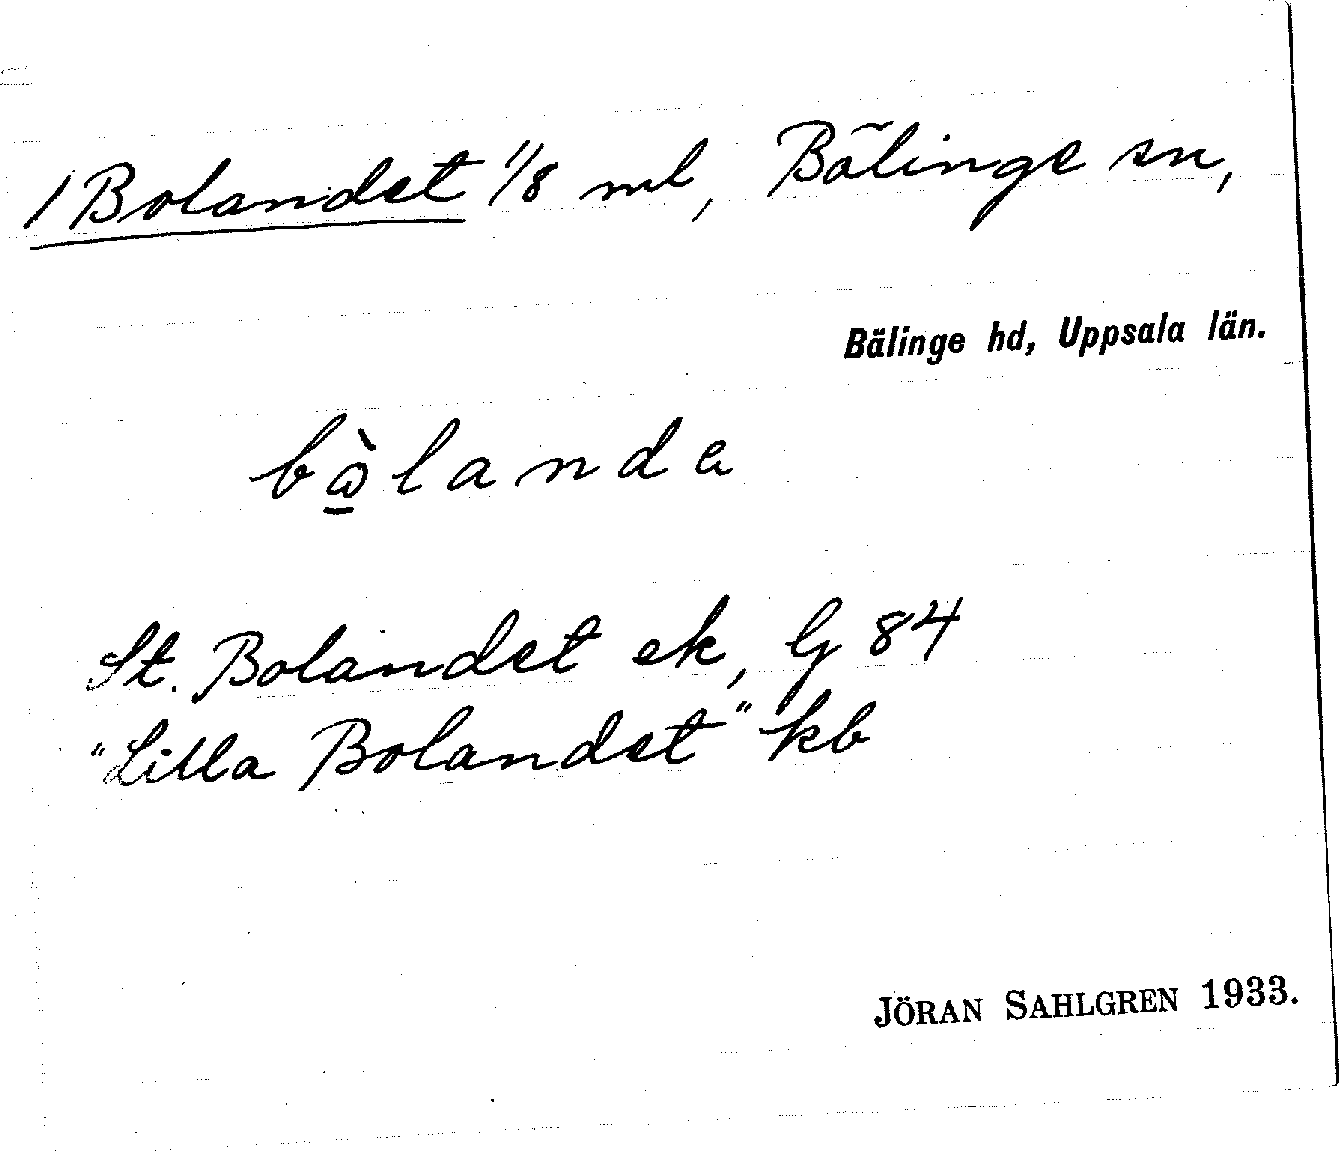 1 Bolandet 1/8 ml, Bälinge sn,
Bälinge hd, Uppsala län.
bὼ̠landa
St. Bolandet ek, G 84
"Lilla Bolandet" kb
JÖRAN SAHLGREN 1933.